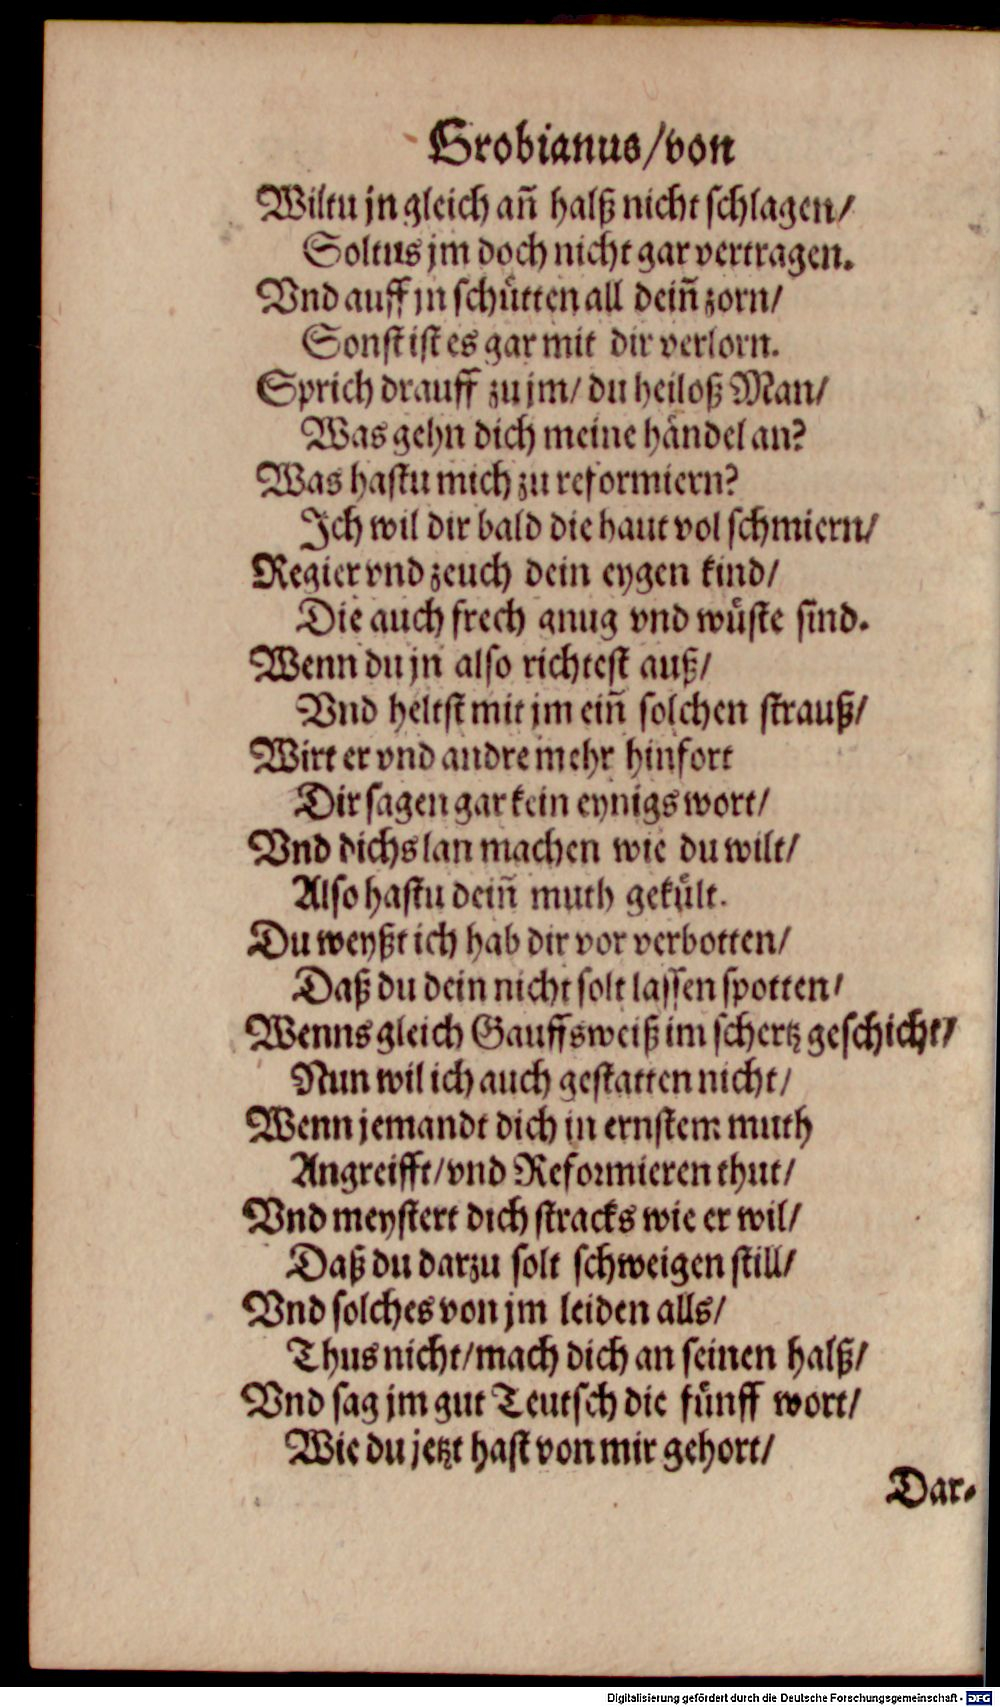 Grobianus/von
Wiltu jn gleich añ halß nicht schlagen/
Soltus jm doch nicht gar vertragen.
Vnd auff jn schütten all deiñ zorn/
Sonst ist es gar mit dir verlorn.
Sprich drauff zu jm/ du heiloß Man/
Was gehn dich meine händel an?
Was hastu mich zu reformiern?
Ich wil dir bald die haut vol schmiern/
Regier vnd zeuch dein eygen kind/
Die auch frech gnug vnd wüste sind.
Wenn du jn also richtest auß/
Vnd heltst mit jm eiñ solchen strauß/
Wirt er vnd andre mehr hinfort
Dir sagen gar kein eynigs wort/
Vnd dichs lan machen wie du wilt/
Also hastu deiñ muth gekült.
Du weyßt ich hab dir vor verbotten/
Daß du dein nicht solt lassen spotten/
Wenns gleich Gauffsweiß im schertz geschicht/
Nun wil ich auch gestatten nicht/
Wenn jemandt dich in ernstem muth
Angreifft/vnd Reformieren thut/
Vnd meystert dich stracks wie er wil/
Daß du darzu solt schweigen still/
Vnd solches von jm leiden alls/
Thus nicht/mach dich an seinen halß/
Vnd sag jm gut Teutsch die fünff wort/
Wie du jetzt hast von mir gehort/
Dar-
Digitalisierung gefördert durch die Deutsche Forschungsgemeinschaft - DFG